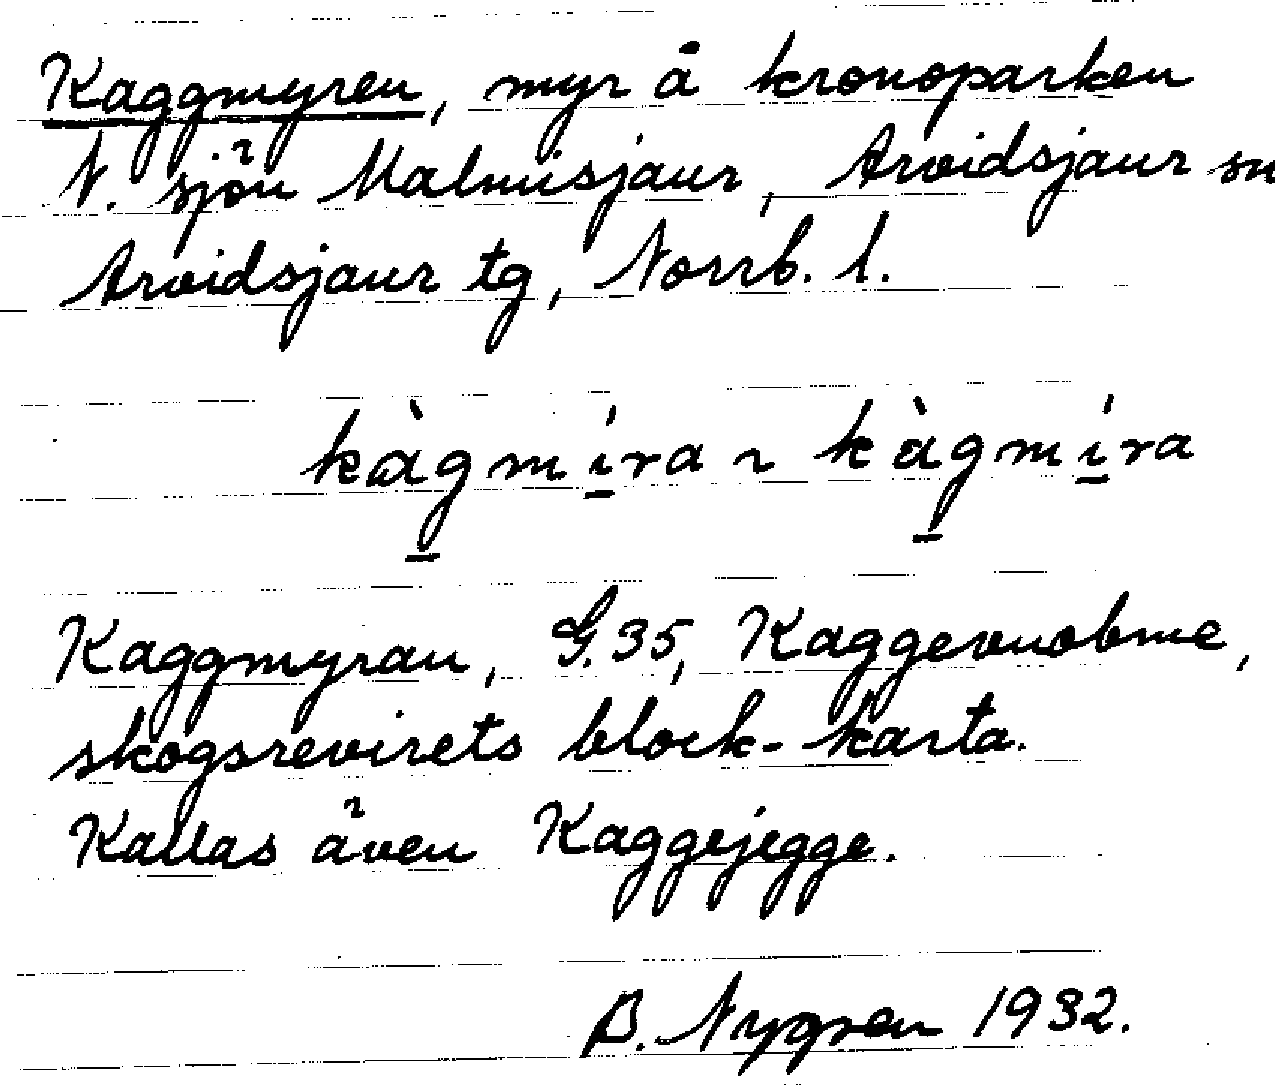 Kaggmyren, myr å kronoparken
N. sjön Malmisjaur, Arvidsjaur sn
Arvidsjaur tg, Norrb. l.
kàg̲mí̲ra ~ kàg̲mí̲ra
Kaggmyran, G.35, Kaggevuobme,
skogsrevirets block-karta.
Kallas även Kaggejegge.
B. Nygren 1932.